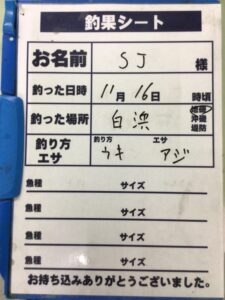 釣果シート
お名前 SJ 様
釣った日時 11月16日 時頃
釣った場所 白浜 磯 沖磯 堤防
釣り方 エサ 釣り方 ウキ エサ アジ
魚種 サイズ
魚種 サイズ
魚種 サイズ
魚種 サイズ
お持ち込みありがとうございました。